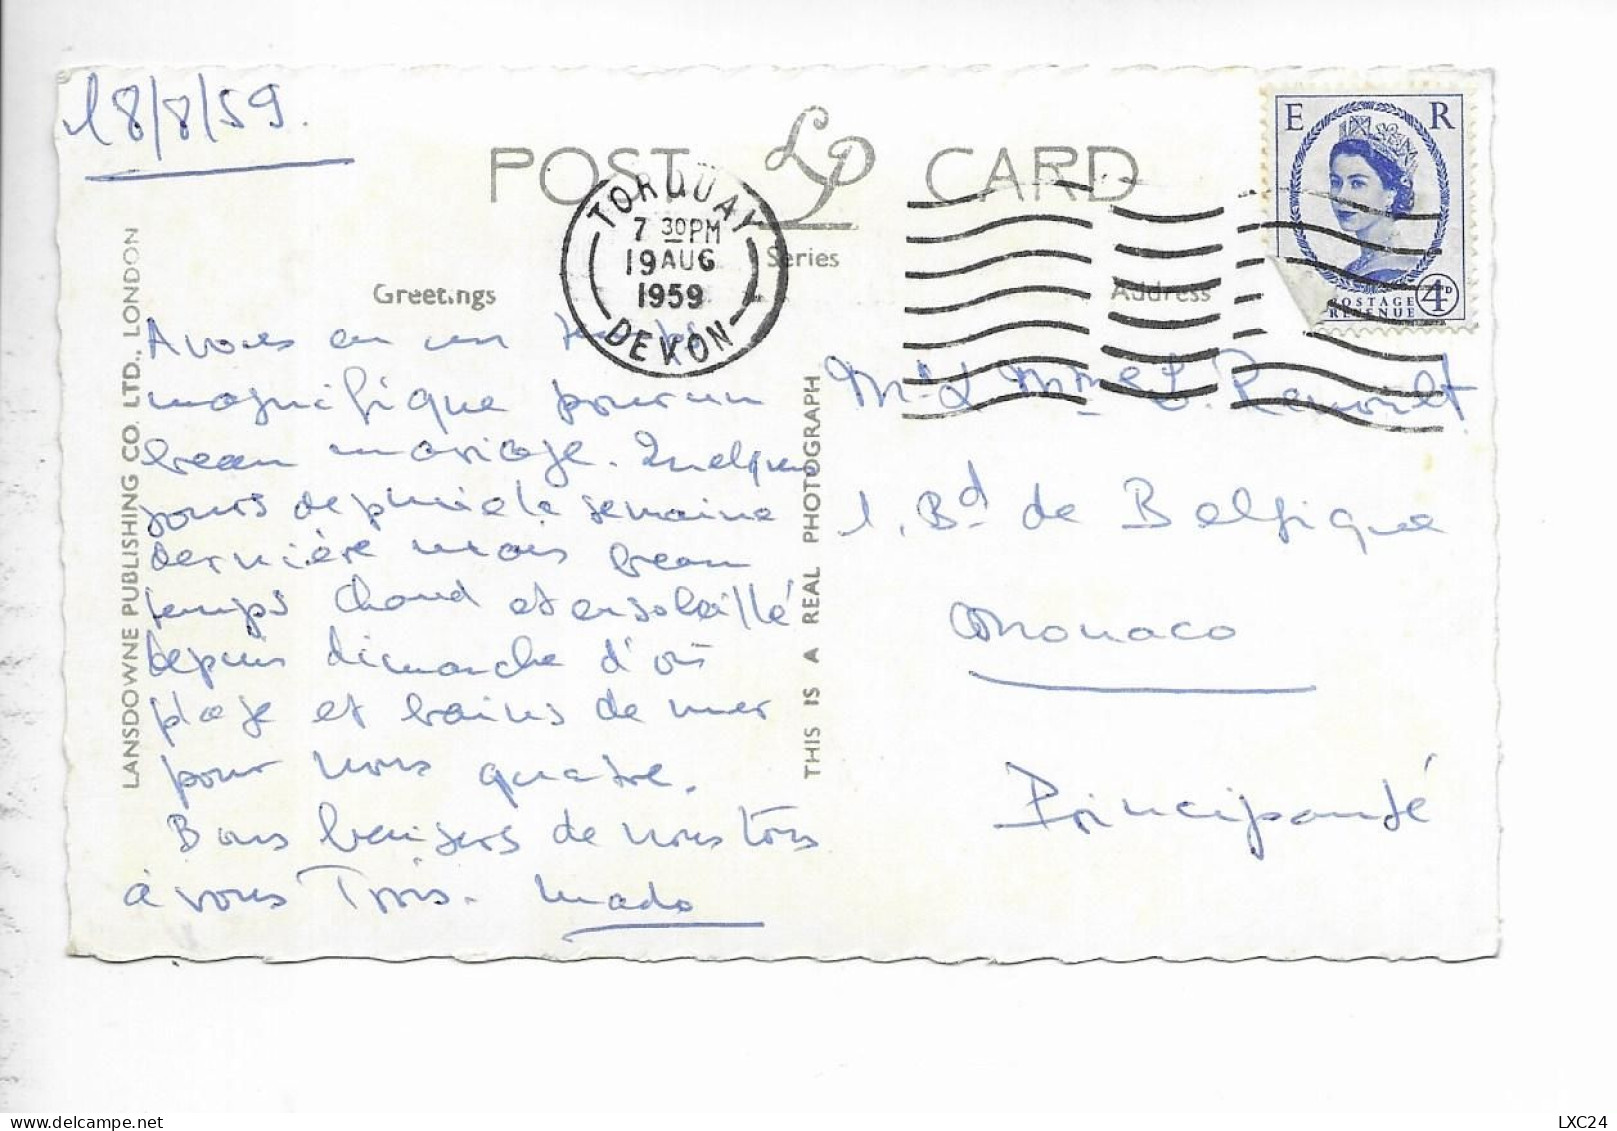 18/8/59.
POST CARD
LP
Series
TORQUAY
7 30PM
19 AUG
1959
DEVON
E R
POSTAGE
REVENUE
4D
Greetings
Address
LANSDOWNE PUBLISHING CO. LTD., LONDON
THIS IS A REAL PHOTOGRAPH
Avons eu un temps
magnifique pour un
beau mariage. Quelques
jours de pluie la semaine
dernière mais beau
temps chaud et ensoleillé
depuis dimanche d'où
plage et bains de mer
pour nous quatre.
Bons baisers de nous tous
à vous Trois. Mado
Mr & Mme L. Renoult
1, Bd de Belgique
Monaco
Principauté
LXC24